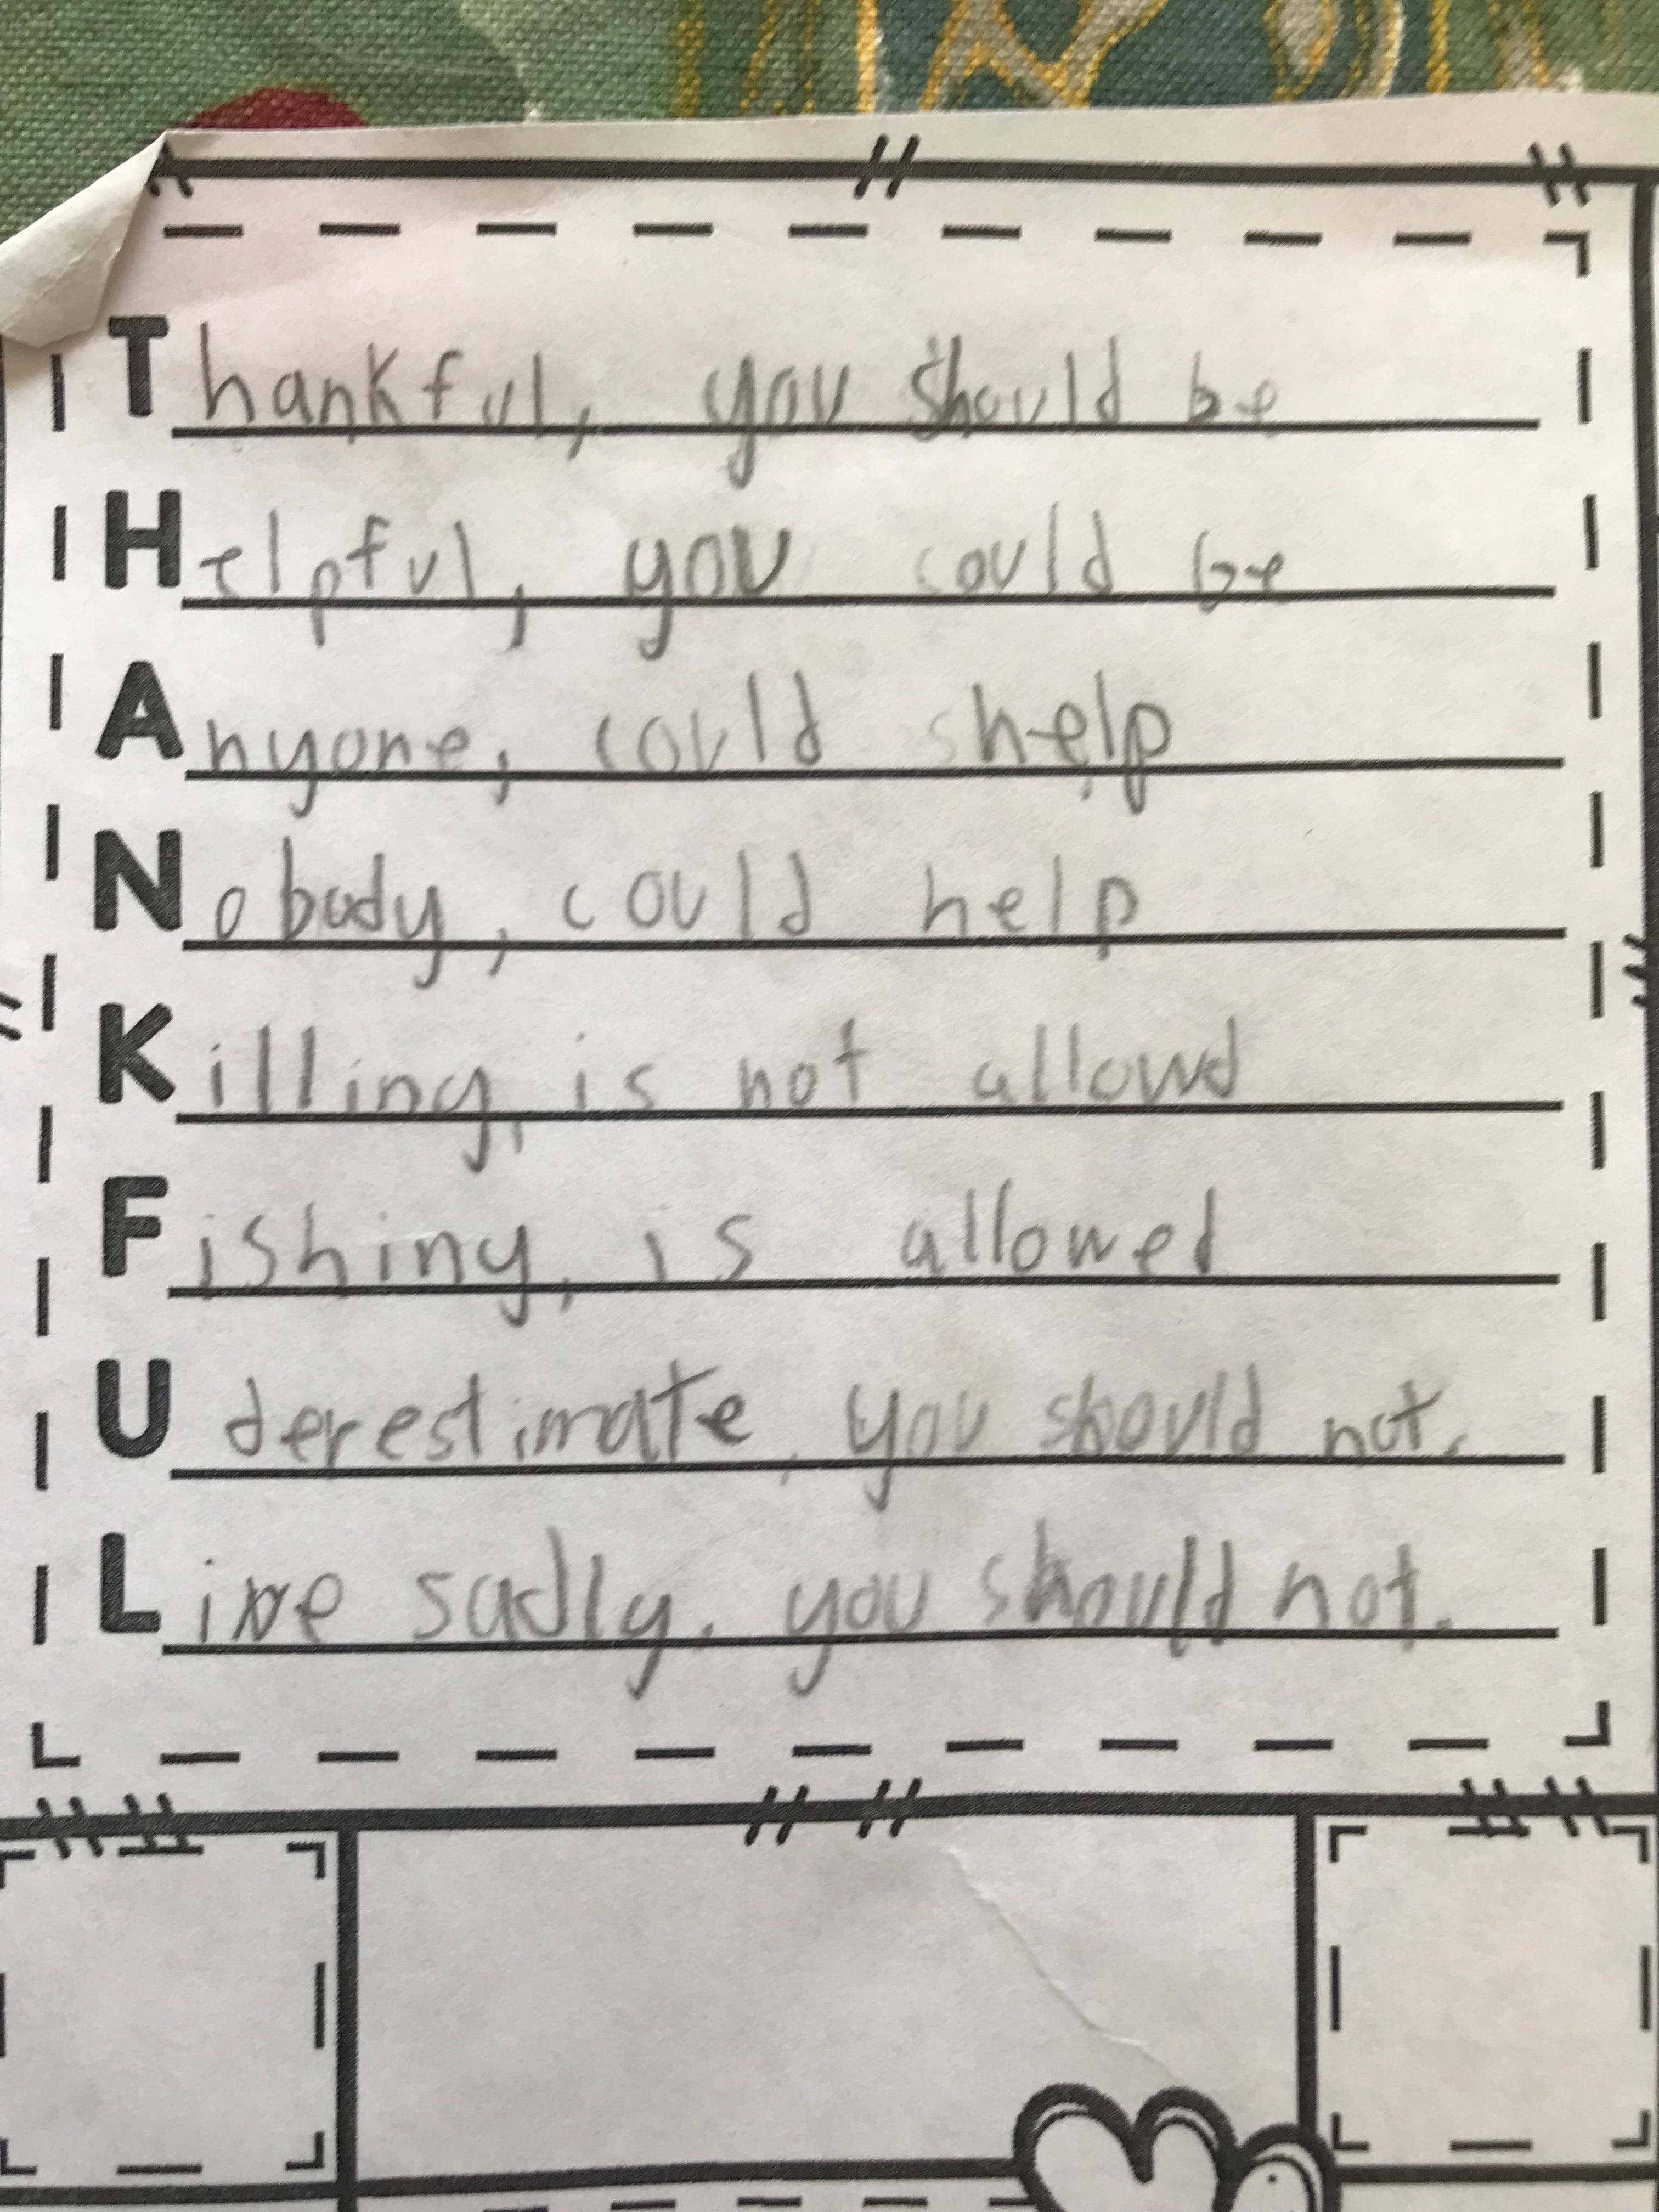 Thankful, you should be
Helpful, you could be
Anyone, could help
Nobody, could help
Killing, is not allowd
Fishing, is allowed
Uderestimate, you should not.
Live sadly. you should not.